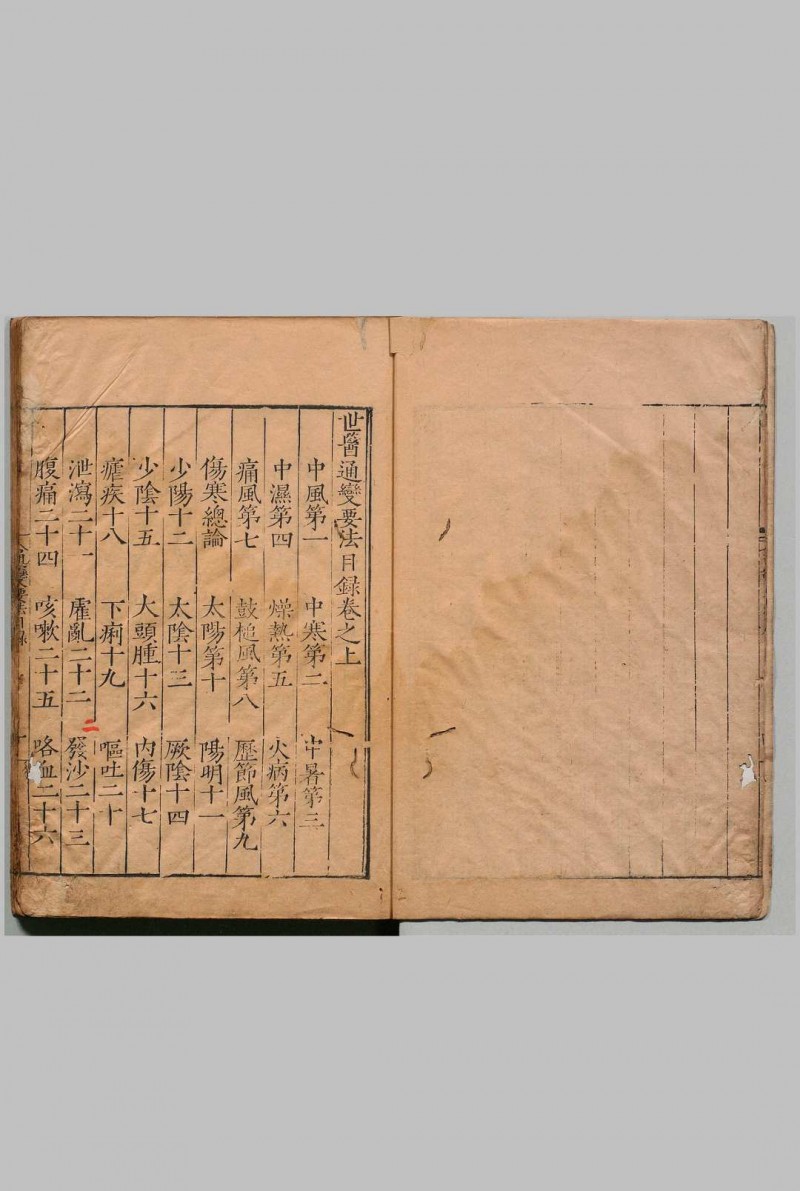 世醫通變要法目録卷之上
中風第一 中寒第二 中暑第三
中濕第四 燥熱第五 火病第六
痛風第七 鼓槌風第八 歷節風第九
傷寒總論 太陽第十 陽明十一
少陽十二 太陰十三 厥陰十四
少陰十五 大頭腫十六 内傷十七
瘧疾十八 下痢十九 嘔吐二十
泄瀉二十一 霍亂二十二 發沙二十三
二
腹痛二十四 咳嗽二十五 咯血二十六